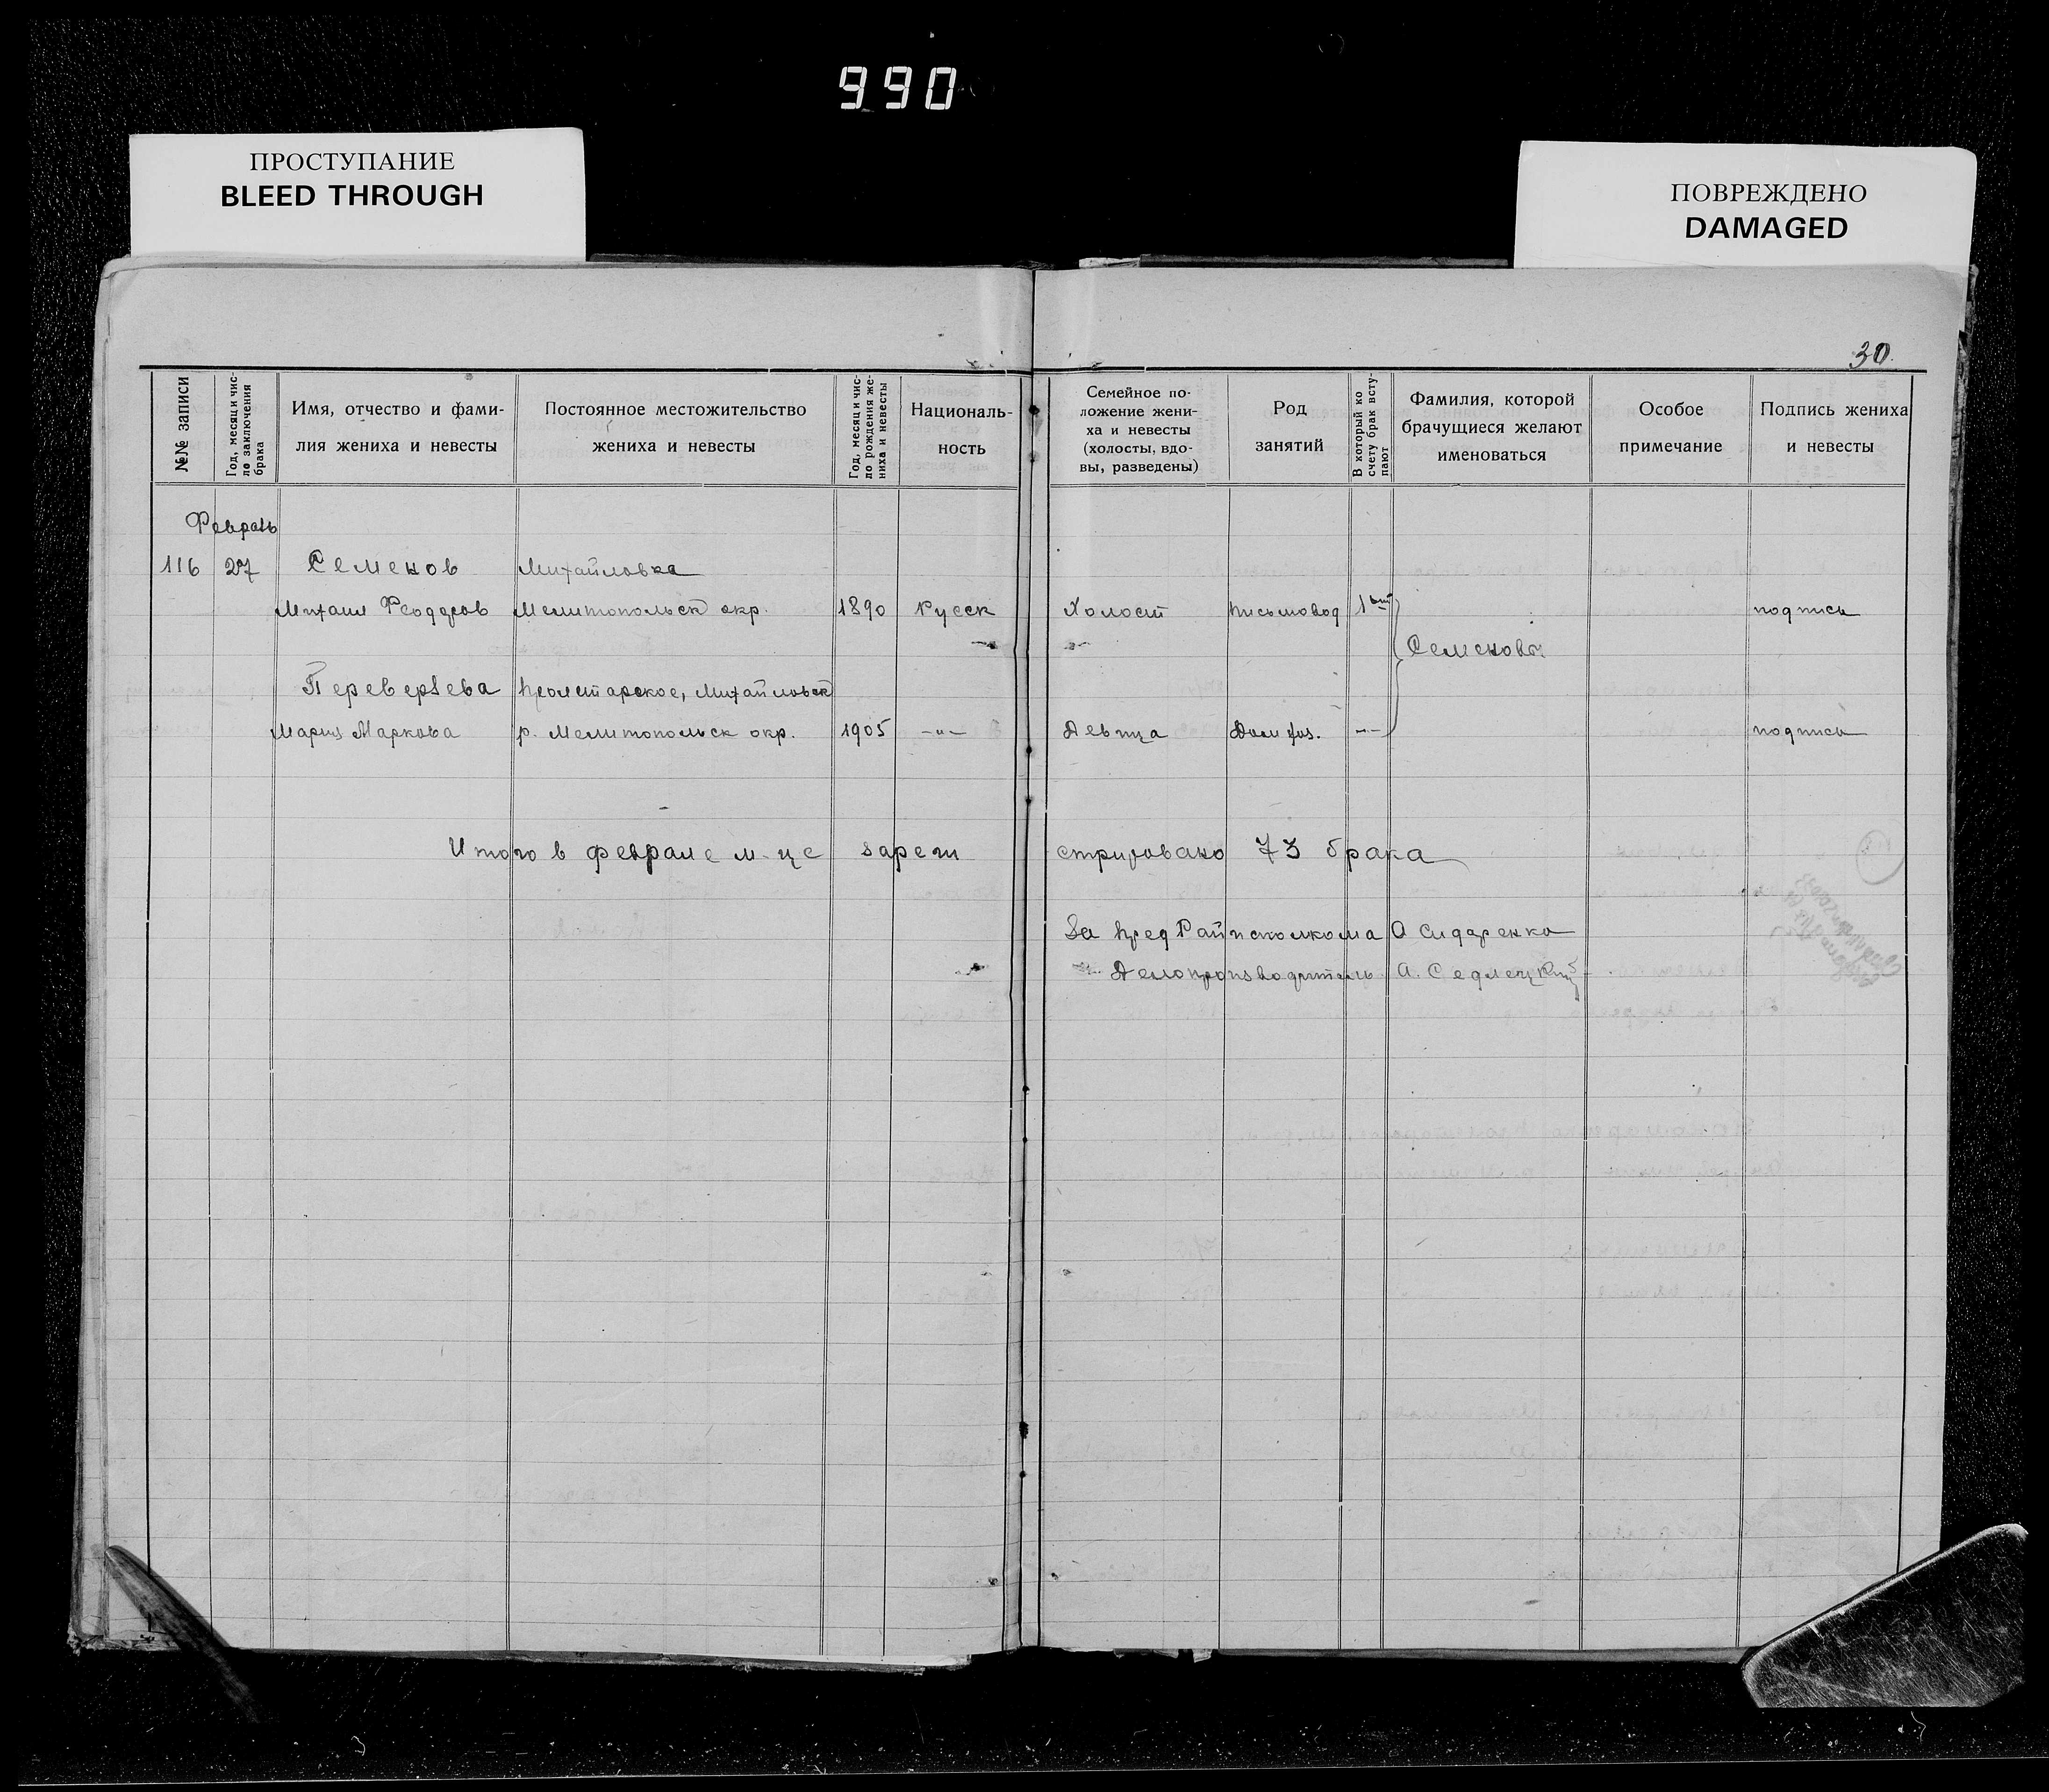 990
ПРОСТУПАНИЕ
BLEED THROUGH
ПОВРЕЖДЕНО
DAMAGED
30.
№№ записи
Год, месяц и чис-
ло заключения
брака
Имя, отчество и фами-
лия жениха и невесты
Постоянное местожительство
жениха и невесты
Год, месяц и чис-
ло рождения же-
ниха и невесты
Националь-
ность
Семейное по-
ложение жени-
ха и невесты
(холосты, вдо-
вы, разведены)
Род
занятий
В который ко
счету брак всту-
пают
Фамилия, которой
брачущиеся желают
именоваться
Особое
примечание
Подпись жениха
и невесты
Февраль
116 27 Семенов Михайловка
Михаил Феодоров Мелитопольск окр. 1890 Русск Холост письмовод 1ый подписи
Семеновы
Переверзева Пролетарское, Михайловск
Мария Маркова р. Мелитопольск окр. 1905 -"- Девица Дом хоз. -"- подписи
Итого в феврале м-це зареги стрировано 73 брака
За Пред Райисполкома А Сидоренко
Делопроизводитель А. Седлецкий